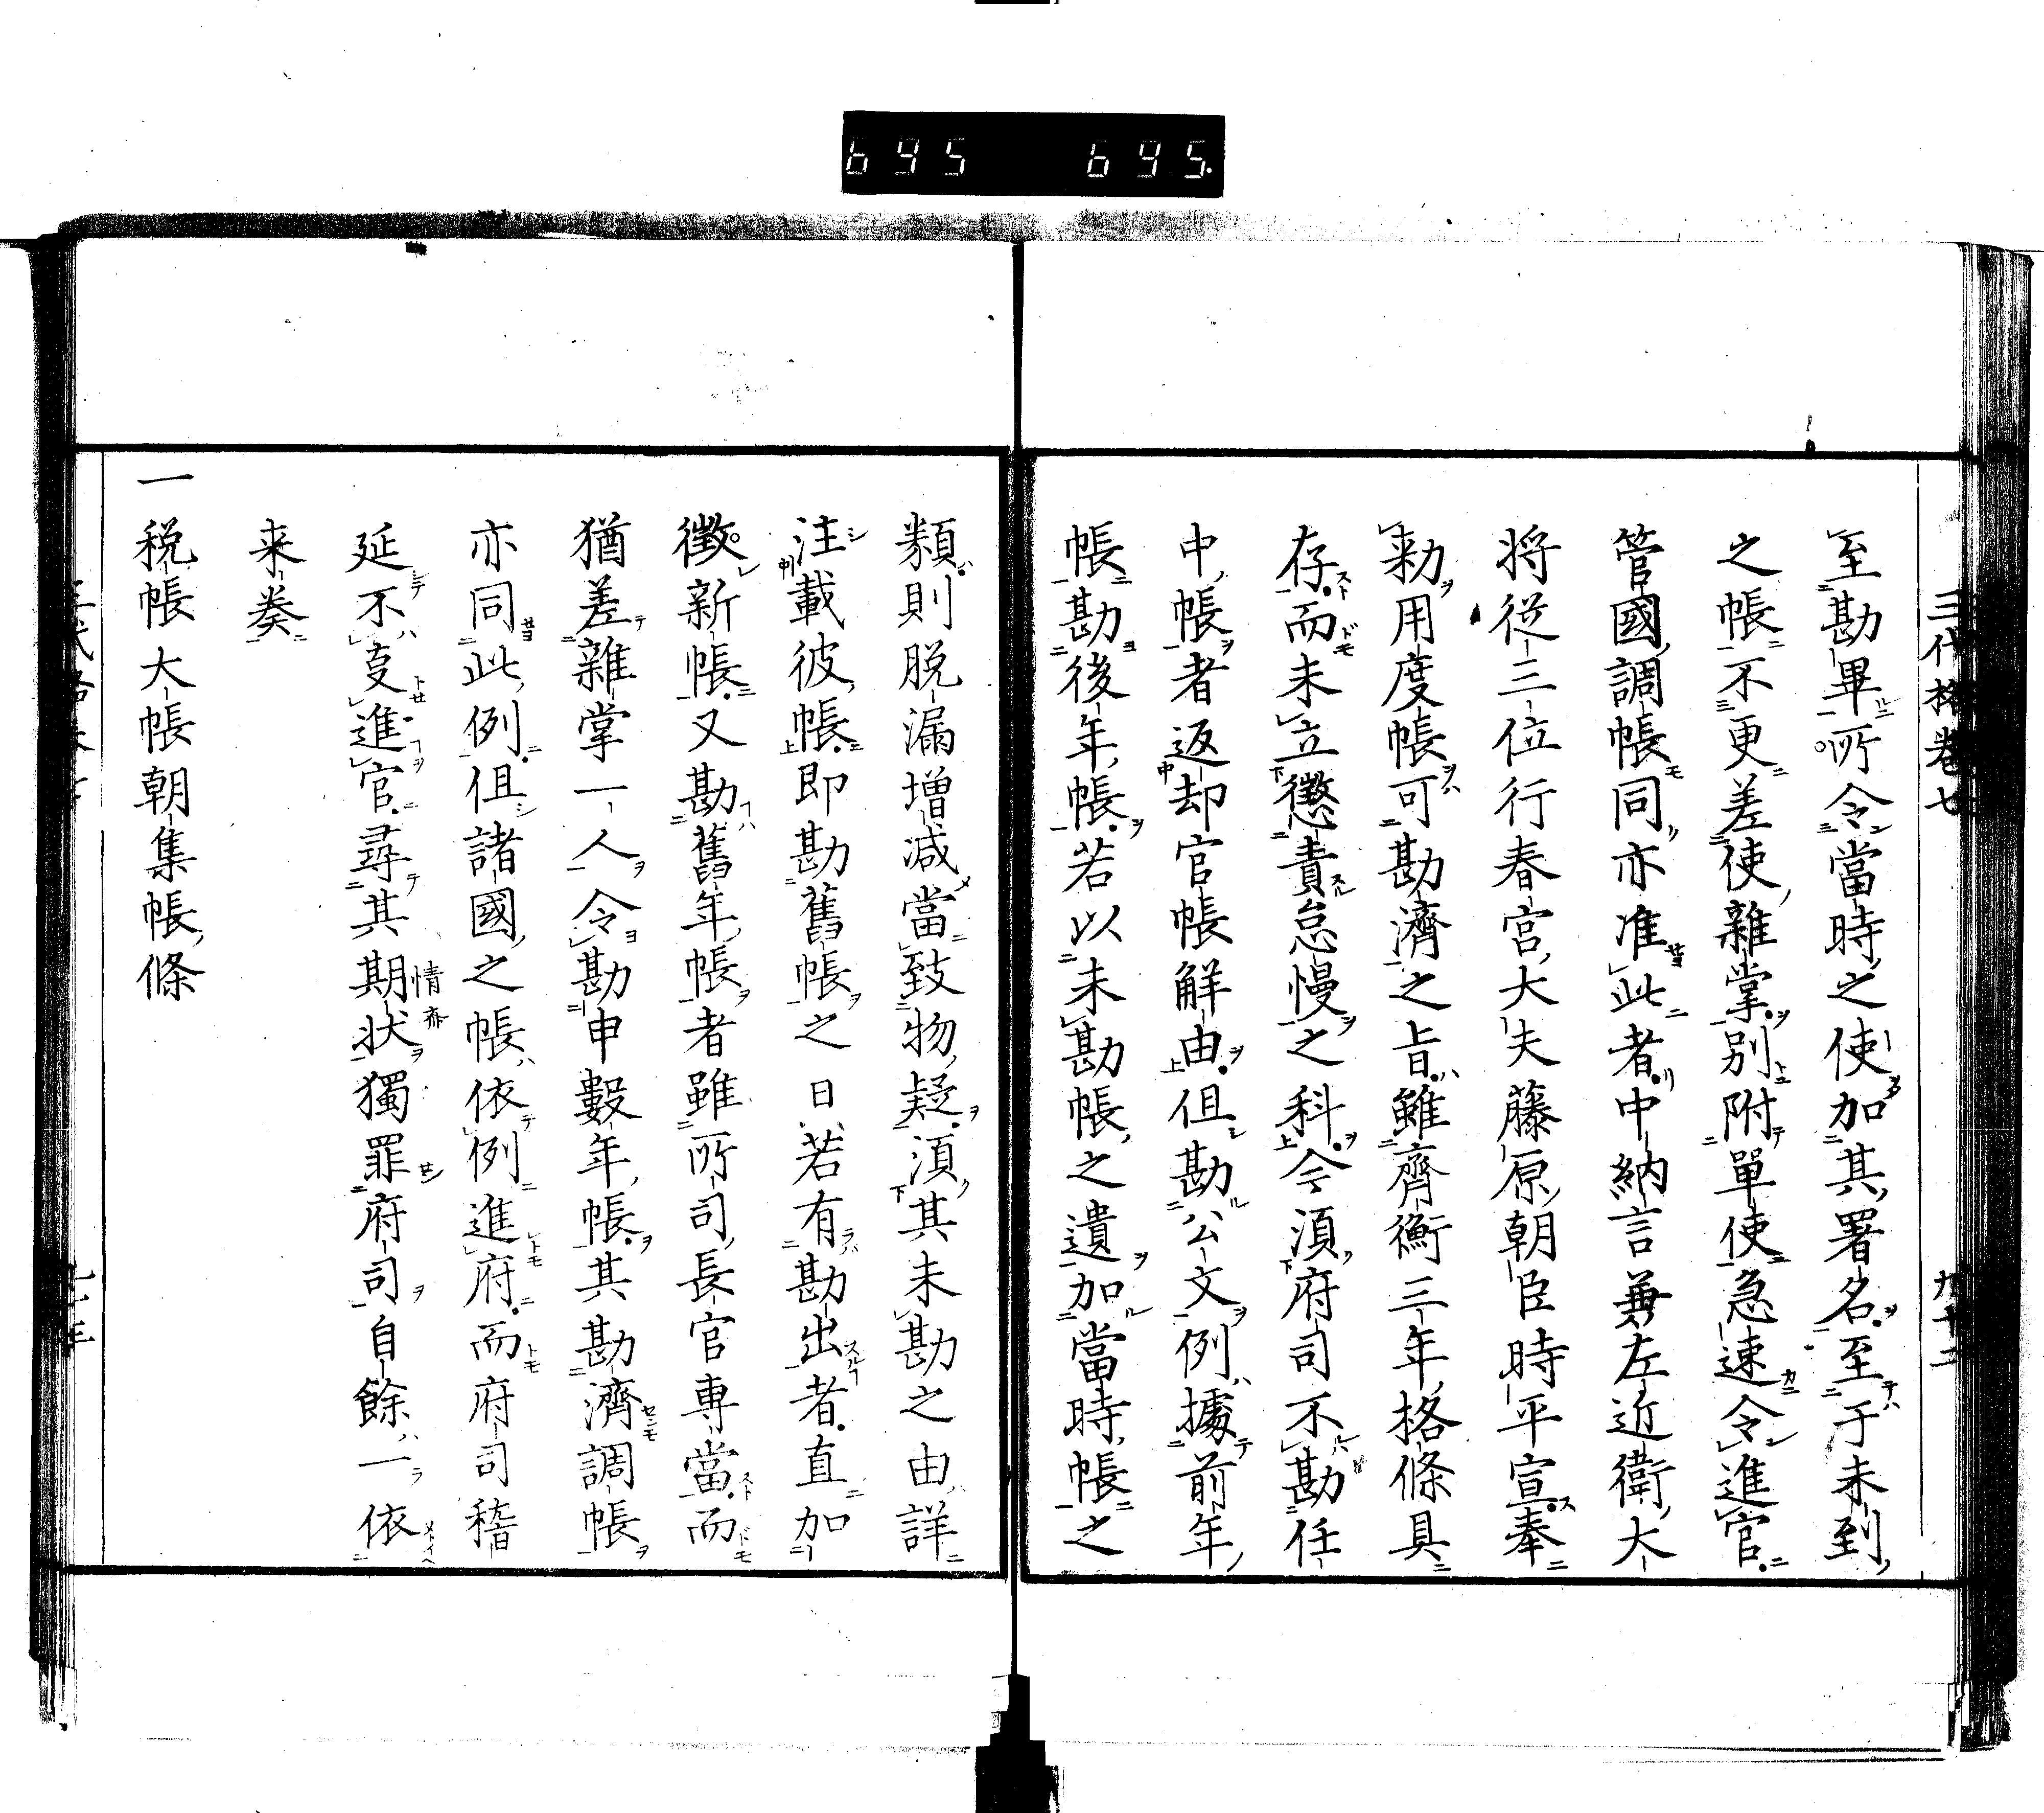 695 695
三代格卷七 九十二
至勘畢所令當時之使加其署名至于未到
之帳不更差使雜掌別附單使急速令進官
管國調帳同亦准此者中納言兼左近衛大
将從三位行春宮大夫藤原朝臣時平宣奉
勅用度帳可勘濟之旨雖齊衡三年格條具
存而未立懲責怠慢之科今須府司不勘任
中帳者返却官帳解由但勘公文例據前年
帳勘後年帳若以未勘帳之遺加當時帳之
類則脱漏増減當致物疑須其未勘之由詳
注載彼帳即勘舊帳之日若有勘出者直加
徴新帳又勘舊年帳者雖所司長官專當而
猶差雜掌一人令勘申數年帳其勘濟調帳
亦同此例但諸國之帳依例進府而府司稽
延不進官尋其期状獨罪府司自餘一依
情亦
来奏
一税帳大帳朝集帳條